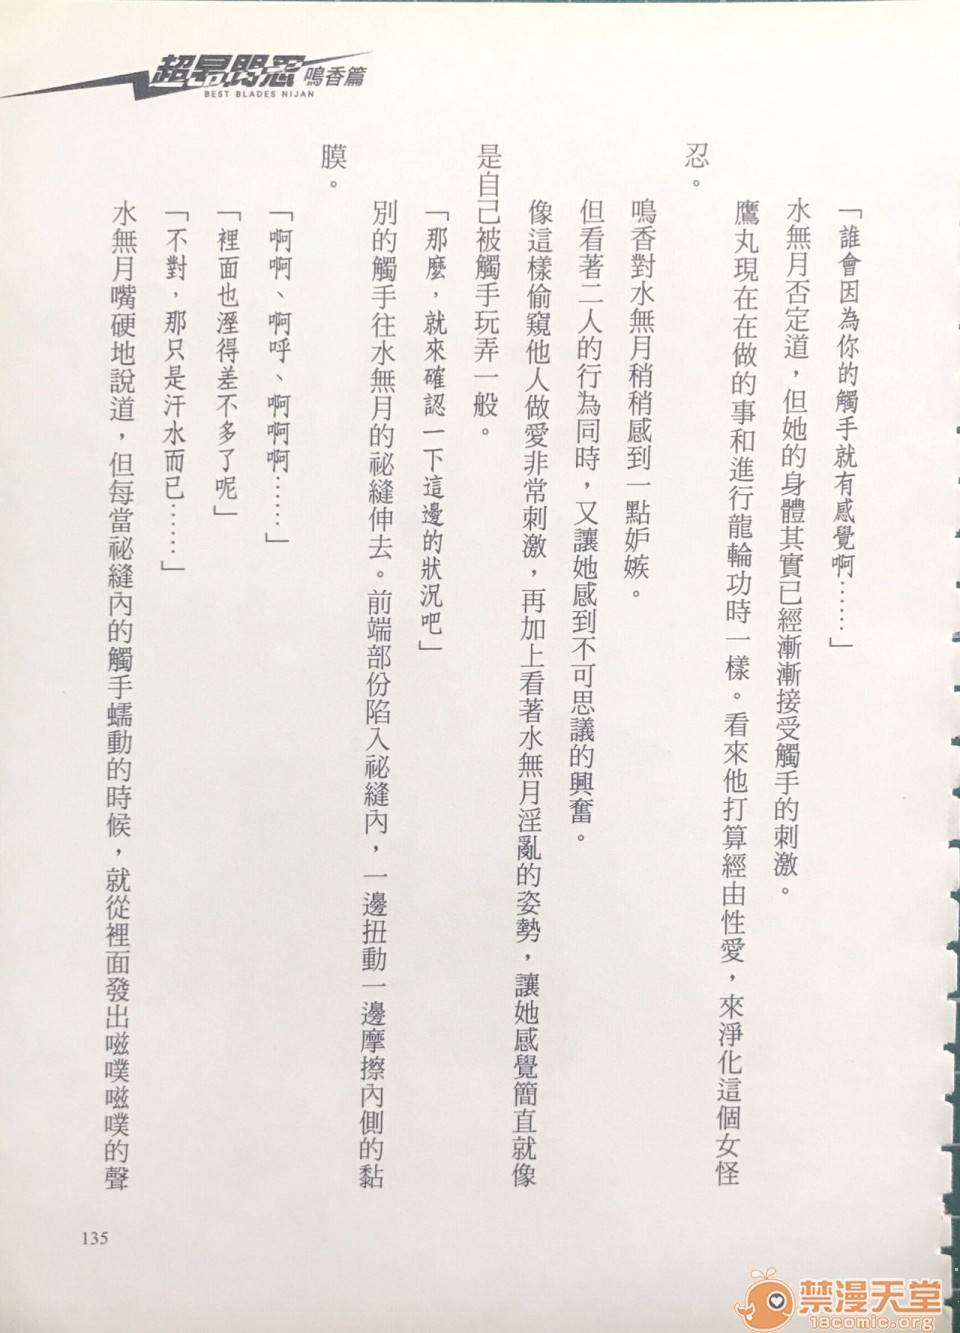 超昂閃忍 鳴香篇
BEST BLADES NIJAN
「誰會因為你的觸手就有感覺啊……」
水無月否定道，但她的身體其實已經漸漸接受觸手的刺激。
鷹丸現在在做的事和進行龍輪功時一樣。看來他打算經由性愛，來淨化這個女怪
忍。
鳴香對水無月稍稍感到一點妒嫉。
但看著二人的行為同時，又讓她感到不可思議的興奮。
像這樣偷窺他人做愛非常刺激，再加上看著水無月淫亂的姿勢，讓她感覺簡直就像
是自己被觸手玩弄一般。
「那麼，就來確認一下這邊的狀況吧」
別的觸手往水無月的祕縫伸去。前端部份陷入祕縫內，一邊扭動一邊摩擦內側的黏
膜。
「啊啊、啊呼、啊啊啊……」
「裡面也溼得差不多了呢」
「不對，那只是汗水而已……」
水無月嘴硬地說道，但每當祕縫內的觸手蠕動的時候，就從裡面發出嗞噗嗞噗的聲
135
禁漫天堂
18comic.org